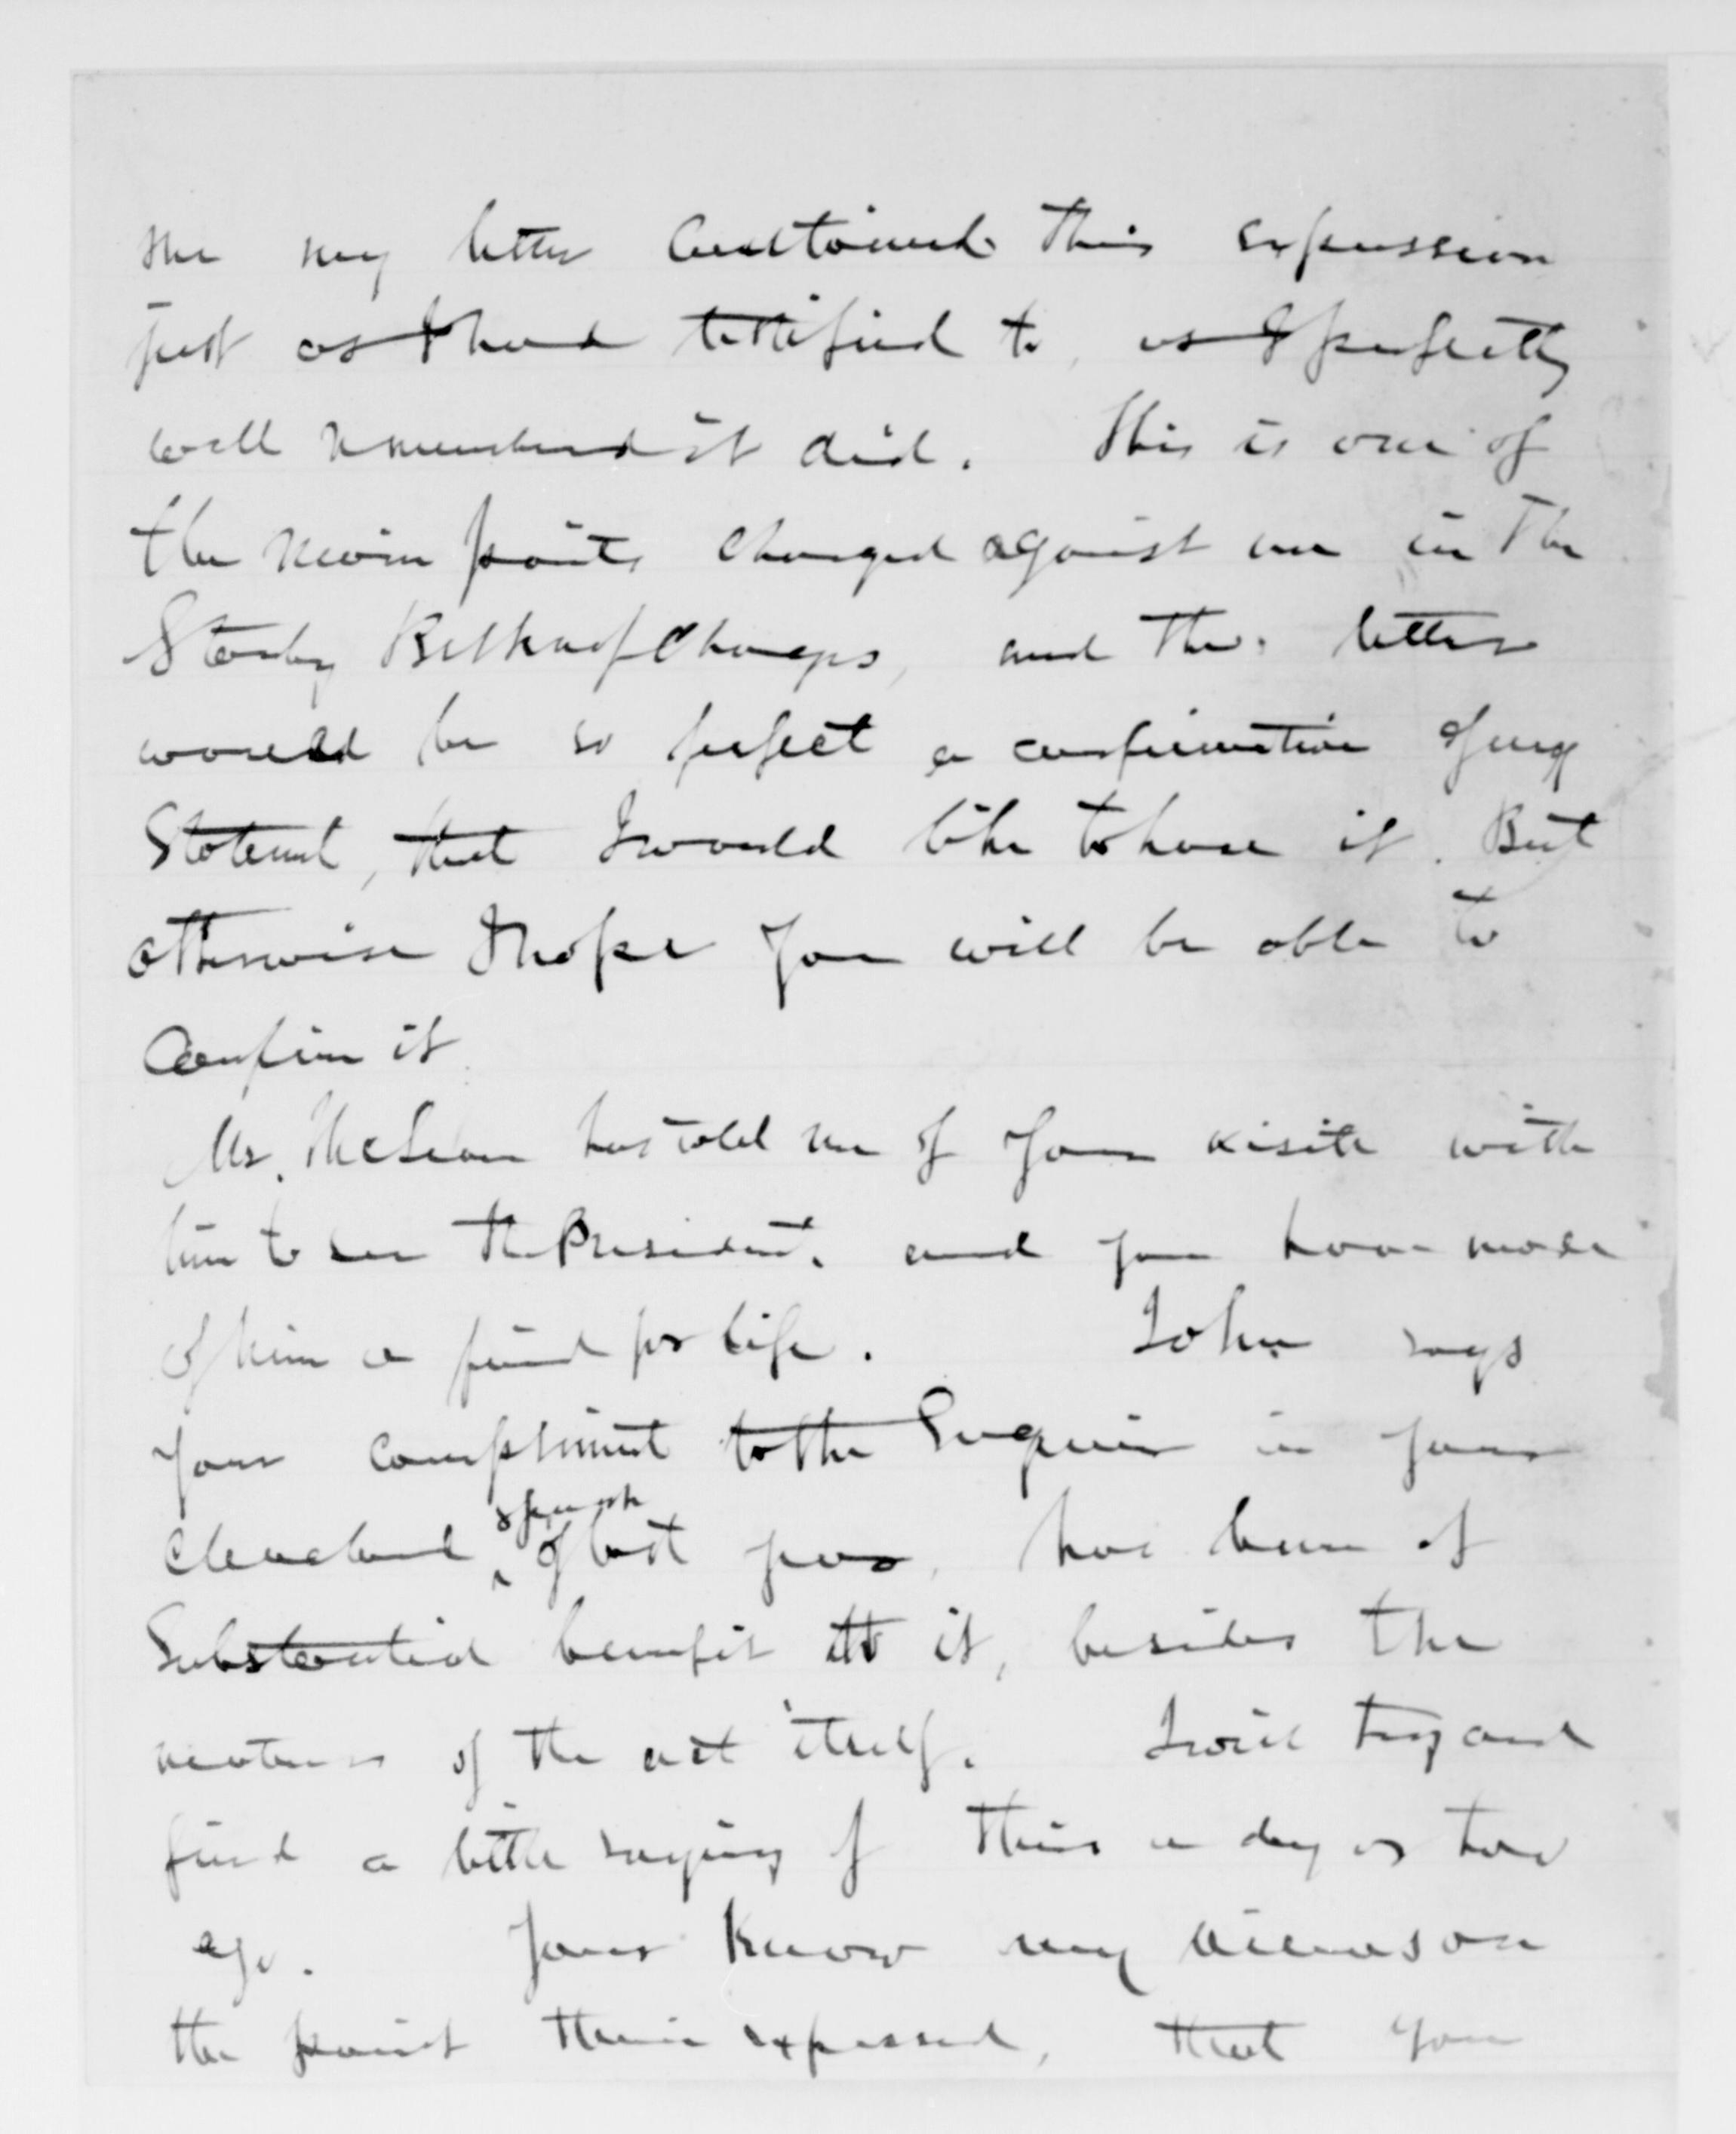 me my letter contained this expression
just as I had testified to, as I perfectly
well remembered it did. This is one of
the main points charged against me in the
Stanley Belknap Charges, and the letter
would be so perfect a confirmation of my
Statement, that I would like to have it. But
otherwise I hope you will be able to
Confirm it.
Mr. McLean has told me of your visit with
him to see the President, and you have made
of him a friend for life. John says
your compliment to the Enquirer in your
Cleveland speech of last year, has been of
Substantial benefit to it, besides the
neatness of the act itself. I will try and
find a little saying of this a day or two
ago. You know my views on
the point therein expressed, that you